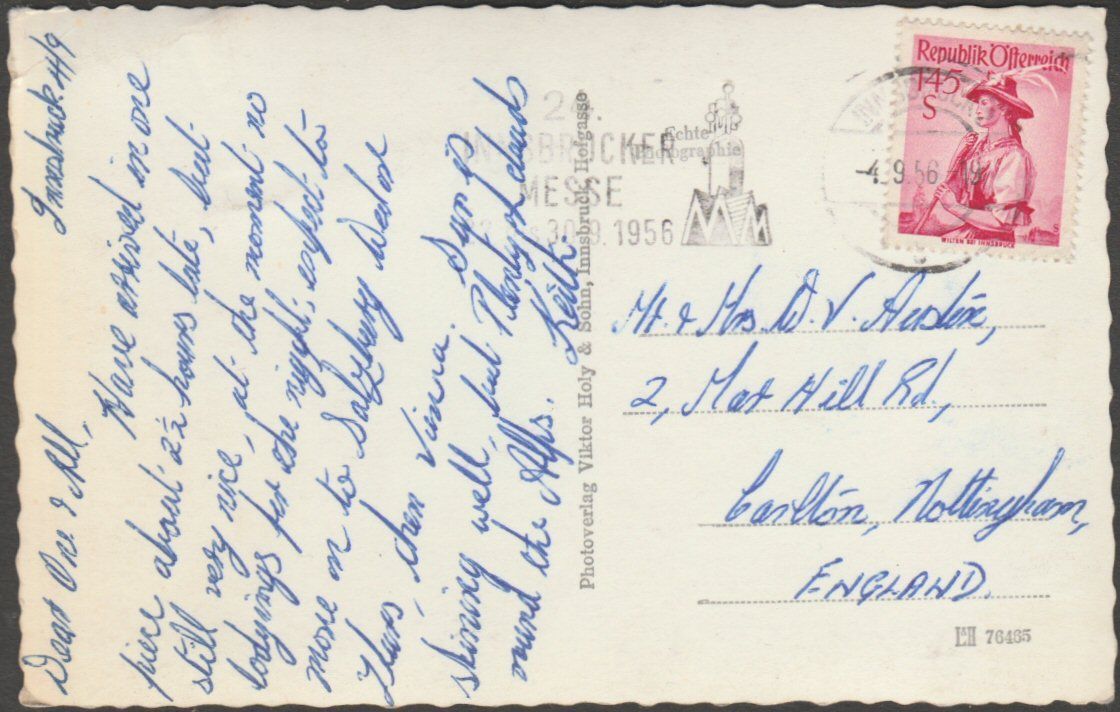 Innsbruck 4/9
Dear One & All,
Have arrived in one
piece about 2½ hours late, but
still very nice, at the moment no
lodgings for the night, expect to
move on to Salzburg Wed or
Thurs, then Vienna. Sun is
shining well, but Plenty of clouds
round the Alps. Keith.
Echte
Photographie
Photoverlag Viktor Holy & Sohn, Innsbruck, Hofgasse
24.
INNSBRUCKER
MESSE
30.9.1956
INNSBRUCK
-4.9.56.-19
Republik Österreich
1·45
S
WILTEN BEI INNSBRUCK
S
Mr. & Mrs D. V. Austin,
2, Hill Rd,
Carlton, Nottingham,
ENGLAND.
76465